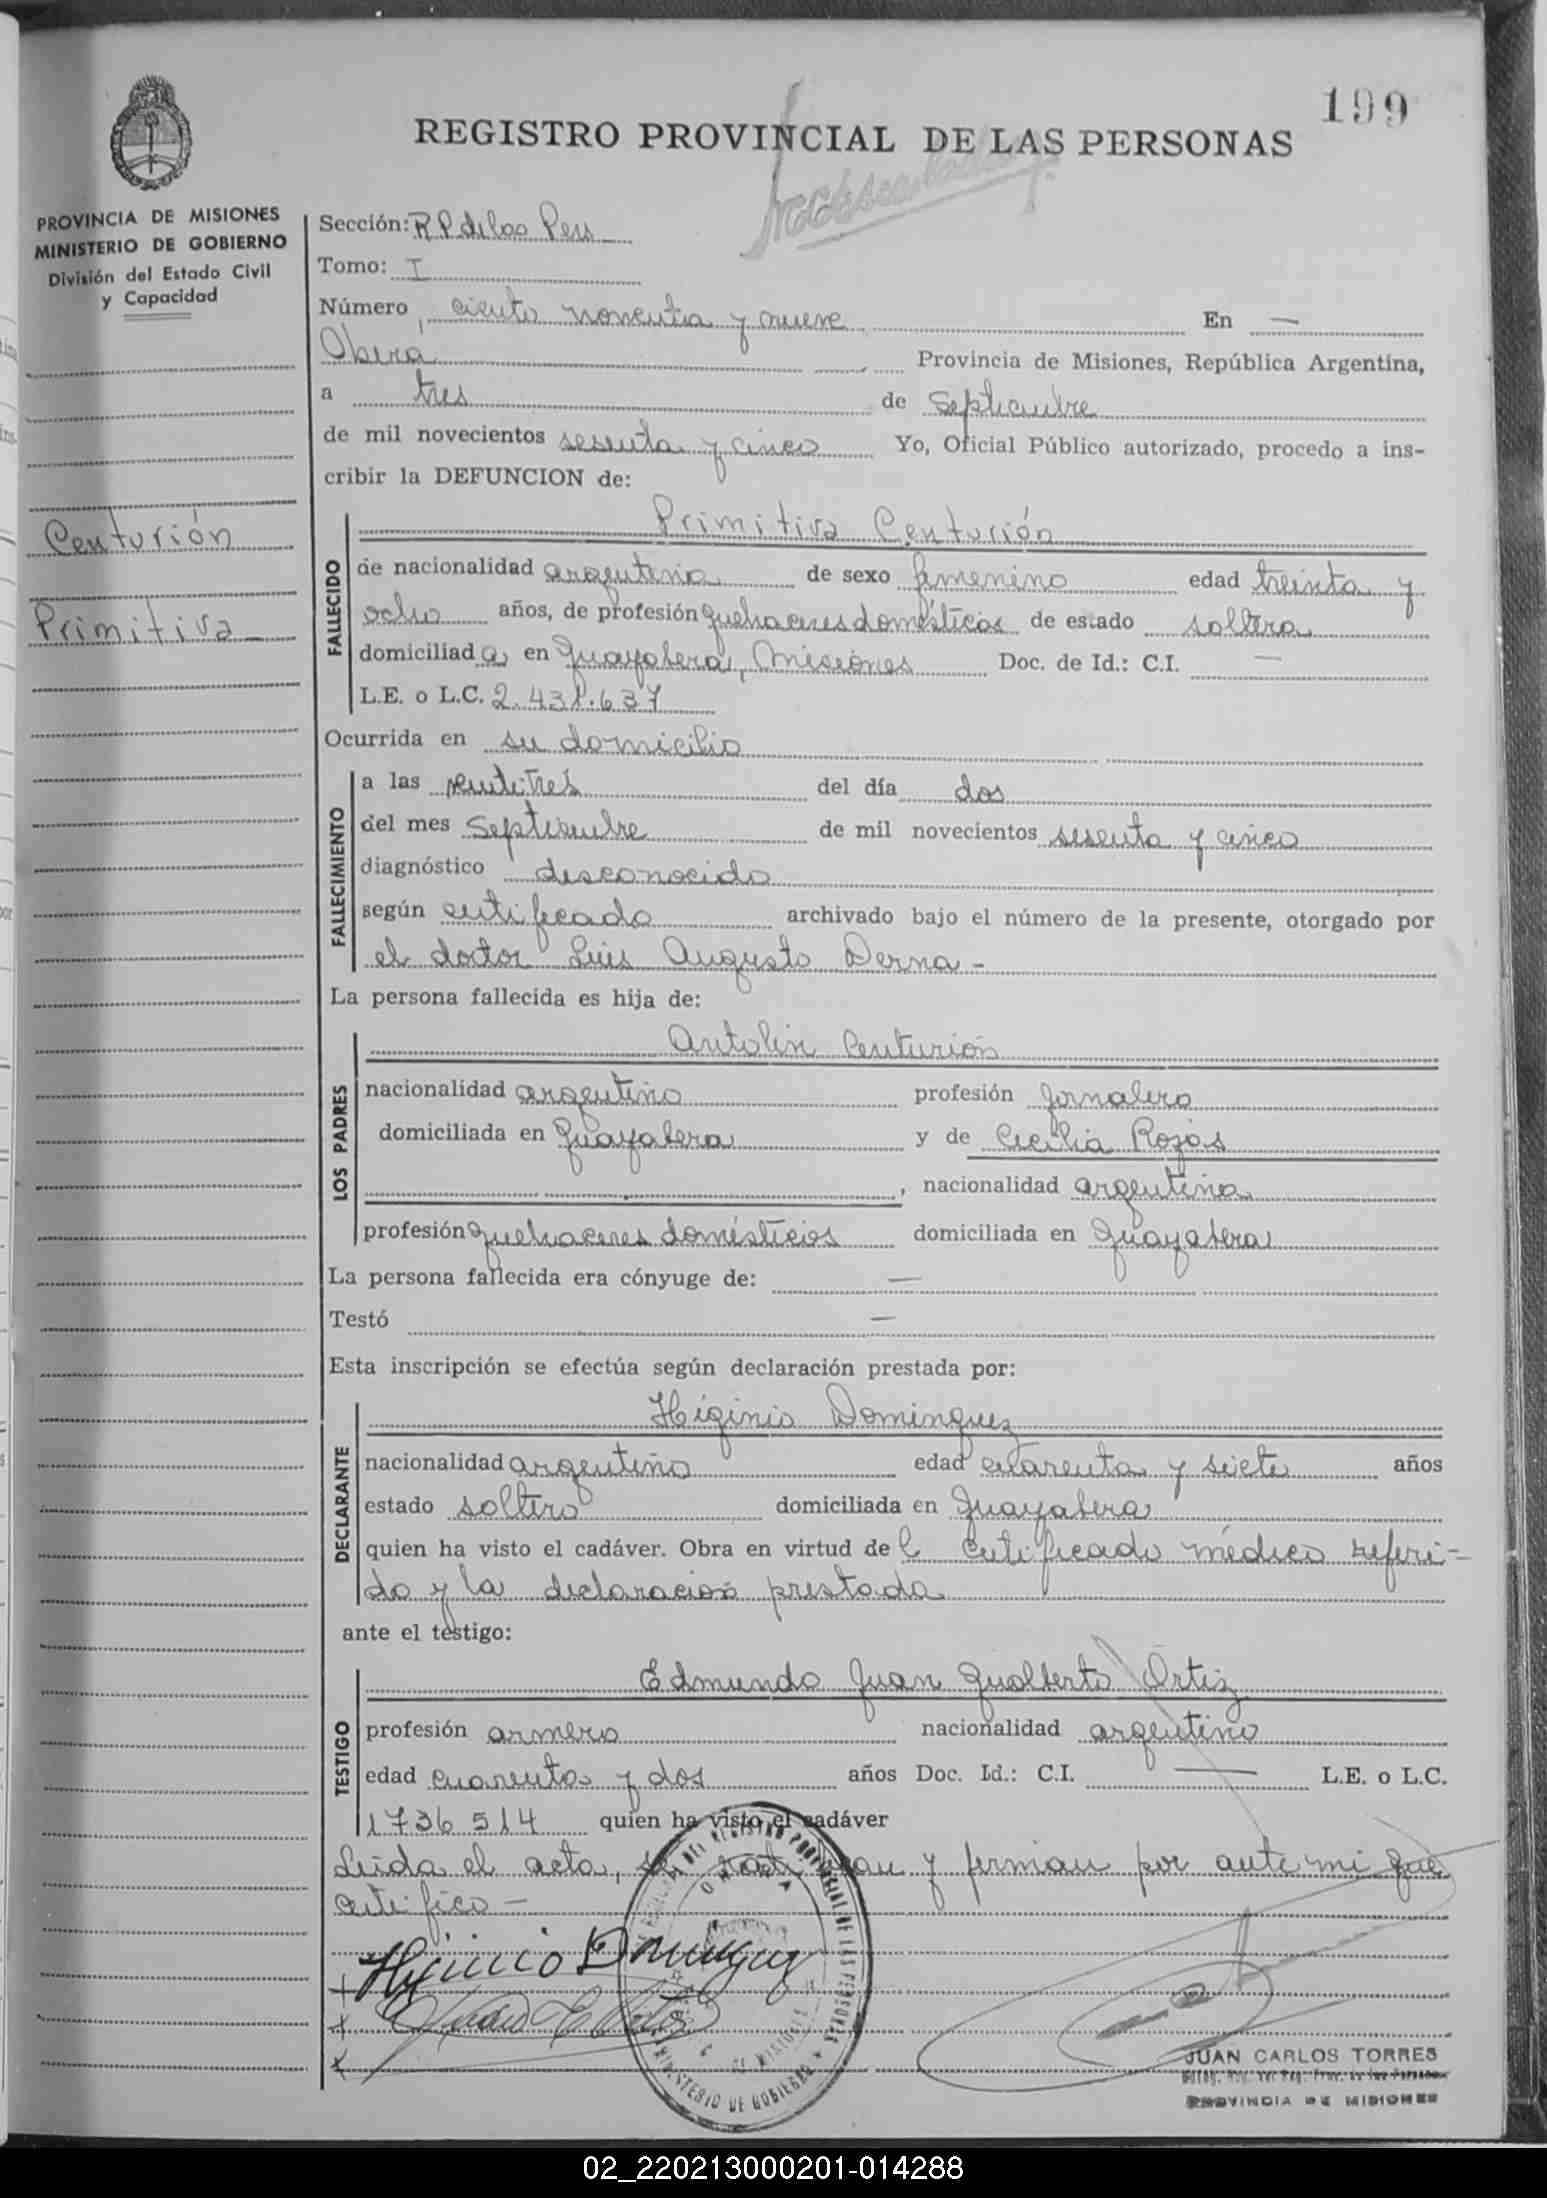 199
REGISTRO PROVINCIAL DE LAS PERSONAS
PROVINCIA DE MISIONES
MINISTERIO DE GOBIERNO
División del Estado Civil
y Capacidad
Centurión
Primitiva
Sección: R P de las Pers
Tomo: I
Número ciento noventa y nueve En —
Obera Provincia de Misiones, República Argentina,
a tres de Septiembre
de mil novecientos sesenta y cinco Yo, Oficial Público autorizado, procedo a ins-
cribir la DEFUNCION de:
FALLECIDO
Primitiva Centurión
de nacionalidad argentina de sexo femenino edad treinta y
ocho años, de profesión quehaceres domésticos de estado soltera
domiciliada en Guayabera, Misiones Doc. de Id.: C.I. —
L.E. o L.C. 2.431.637
Ocurrida en su domicilio
FALLECIMIENTO
a las veintitres del día dos
del mes Septiembre de mil novecientos sesenta y cinco
diagnóstico desconocido
según certificado archivado bajo el número de la presente, otorgado por
el doctor Luis Augusto Derna -
La persona fallecida es hija de:
LOS PADRES
Antolin Centurión
nacionalidad argentino profesión Jornalero
domiciliada en Guayabera y de Cecilia Rojas
, nacionalidad argentina
profesión quehaceres domésticos domiciliada en Guayabera
La persona fallecida era cónyuge de: —
Testó —
Esta inscripción se efectúa según declaración prestada por:
DECLARANTE
Higinio Dominguez
nacionalidad argentino edad cuarenta y siete años
estado soltero domiciliada en Guayabera
quien ha visto el cadáver. Obra en virtud del certificado médico referi-
do y la declaración prestada
ante el testigo:
TESTIGO
Edmundo Juan Gualberto Ortiz
profesión armero nacionalidad argentino
edad cuarenta y dos años Doc. Id.: C.I. — L.E. o L.C.
1736514 quien ha visto el cadáver
Leida el acta, se ratifican y firman por ante mi que
certifico -
Higinio Dominguez
JUAN CARLOS TORRES
PROVINCIA DE MISIONES
02_220213000201-014288